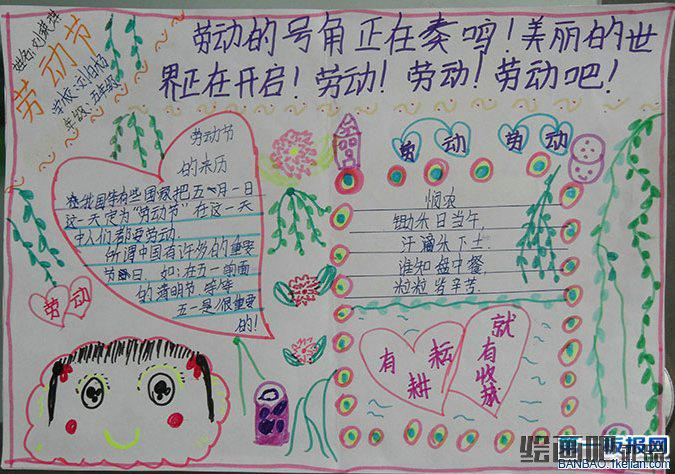 劳动节
年级:五年级
劳动的号角正在奏鸣!美丽的世
界正在开启!劳动!劳动!劳动吧!
劳动节
的来历
在我国和有些国家把五月一日
这一天定为“劳动节”在这一天
中人们都要劳动
所谓中国有许多的重要
节日.如:在五一前面
的清明节
五一是很重要
的!
劳动
劳动 劳动
悯农
锄禾日当午
汗滴禾下土.
谁知盘中餐
粒粒皆辛苦.
有耕耘
就有收获
BANBAO.1kejian.COM